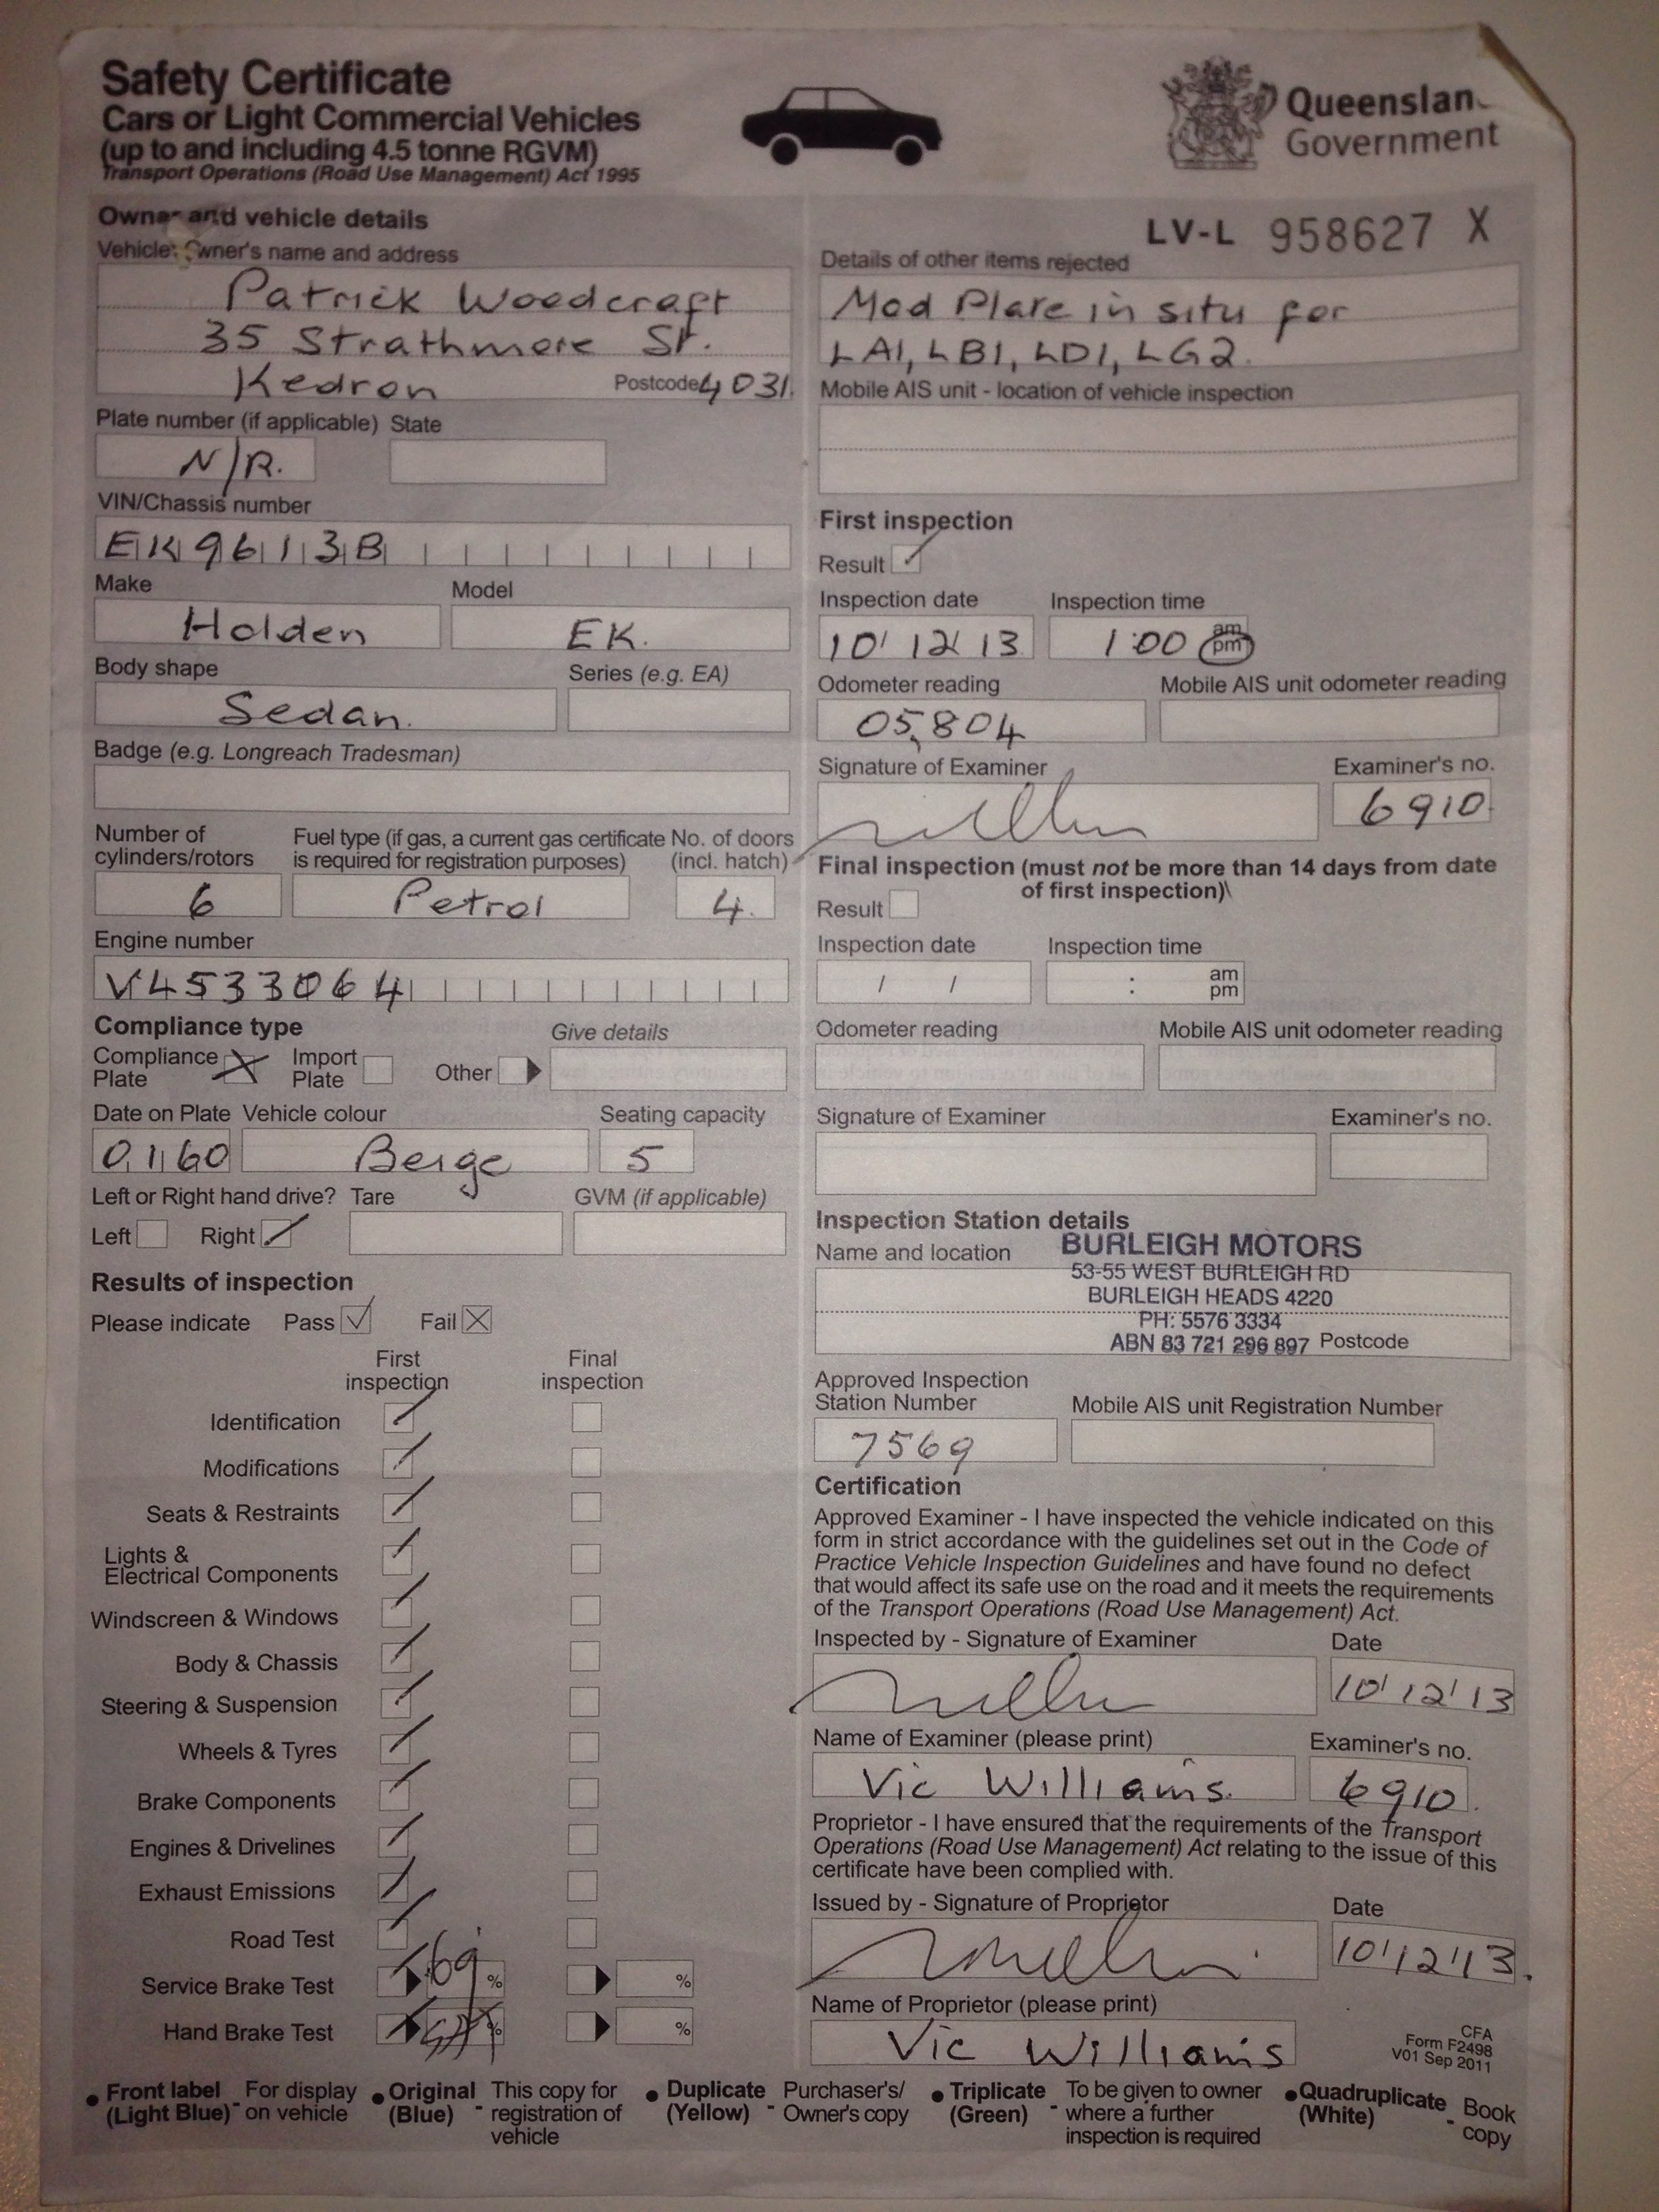 Safety Certificate
Cars or Light Commercial Vehicles
(up to and including 4.5 tonne RGVM)
Transport Operations (Road Use Management) Act 1995
Queenslan
Government
LV-L 958627 X
Owner and vehicle details
Vehicle Owner's name and address
Patrick Woodcraft
35 Strathmore St.
Kedron Postcode 4031
Plate number (if applicable) State
N/R.
VIN/Chassis number
EK96113B
Make Model
Holden EK.
Body shape Series (e.g. EA)
Sedan.
Badge (e.g. Longreach Tradesman)
Number of cylinders/rotors
Fuel type (if gas, a current gas certificate is required for registration purposes)
No. of doors (incl. hatch)
6 Petrol 4.
Engine number
V4533064
Compliance type Give details
Compliance Plate Import Plate Other
Date on Plate Vehicle colour Seating capacity
01 60 Beige 5
Left or Right hand drive? Tare GVM (if applicable)
Left Right
Results of inspection
Please indicate Pass Fail
First inspection Final inspection
Identification
Modifications
Seats & Restraints
Lights &
Electrical Components
Windscreen & Windows
Body & Chassis
Steering & Suspension
Wheels & Tyres
Brake Components
Engines & Drivelines
Exhaust Emissions
Road Test
Service Brake Test 69 % %
Hand Brake Test % %
Details of other items rejected
Mod Plate in situ for
LA1, LB1, LD1, LG2.
Mobile AIS unit - location of vehicle inspection
First inspection
Result
Inspection date Inspection time
10 12 13 1:00 am pm
Odometer reading Mobile AIS unit odometer reading
05,804
Signature of Examiner Examiner's no.
6910
Final inspection (must not be more than 14 days from date
of first inspection)\
Result
Inspection date Inspection time
/ / : am pm
Odometer reading Mobile AIS unit odometer reading
Signature of Examiner Examiner's no.
Inspection Station details
Name and location
BURLEIGH MOTORS
53-55 WEST BURLEIGH RD
BURLEIGH HEADS 4220
PH: 5576 3334
ABN 83 721 296 897 Postcode
Approved Inspection
Station Number Mobile AIS unit Registration Number
7569
Certification
Approved Examiner - I have inspected the vehicle indicated on this
form in strict accordance with the guidelines set out in the Code of
Practice Vehicle Inspection Guidelines and have found no defect
that would affect its safe use on the road and it meets the requirements
of the Transport Operations (Road Use Management) Act.
Inspected by - Signature of Examiner Date
10 12 13
Name of Examiner (please print) Examiner's no.
Vic Williams. 6910.
Proprietor - I have ensured that the requirements of the Transport
Operations (Road Use Management) Act relating to the issue of this
certificate have been complied with.
Issued by - Signature of Proprietor Date
10 12 13.
Name of Proprietor (please print)
Vic Williams
CFA
Form F2498
V01 Sep 2011
• Front label (Light Blue) - For display on vehicle
• Original (Blue) - This copy for registration of vehicle
• Duplicate (Yellow) - Purchaser's/ Owner's copy
• Triplicate (Green) - To be given to owner where a further inspection is required
• Quadruplicate (White) - Book copy